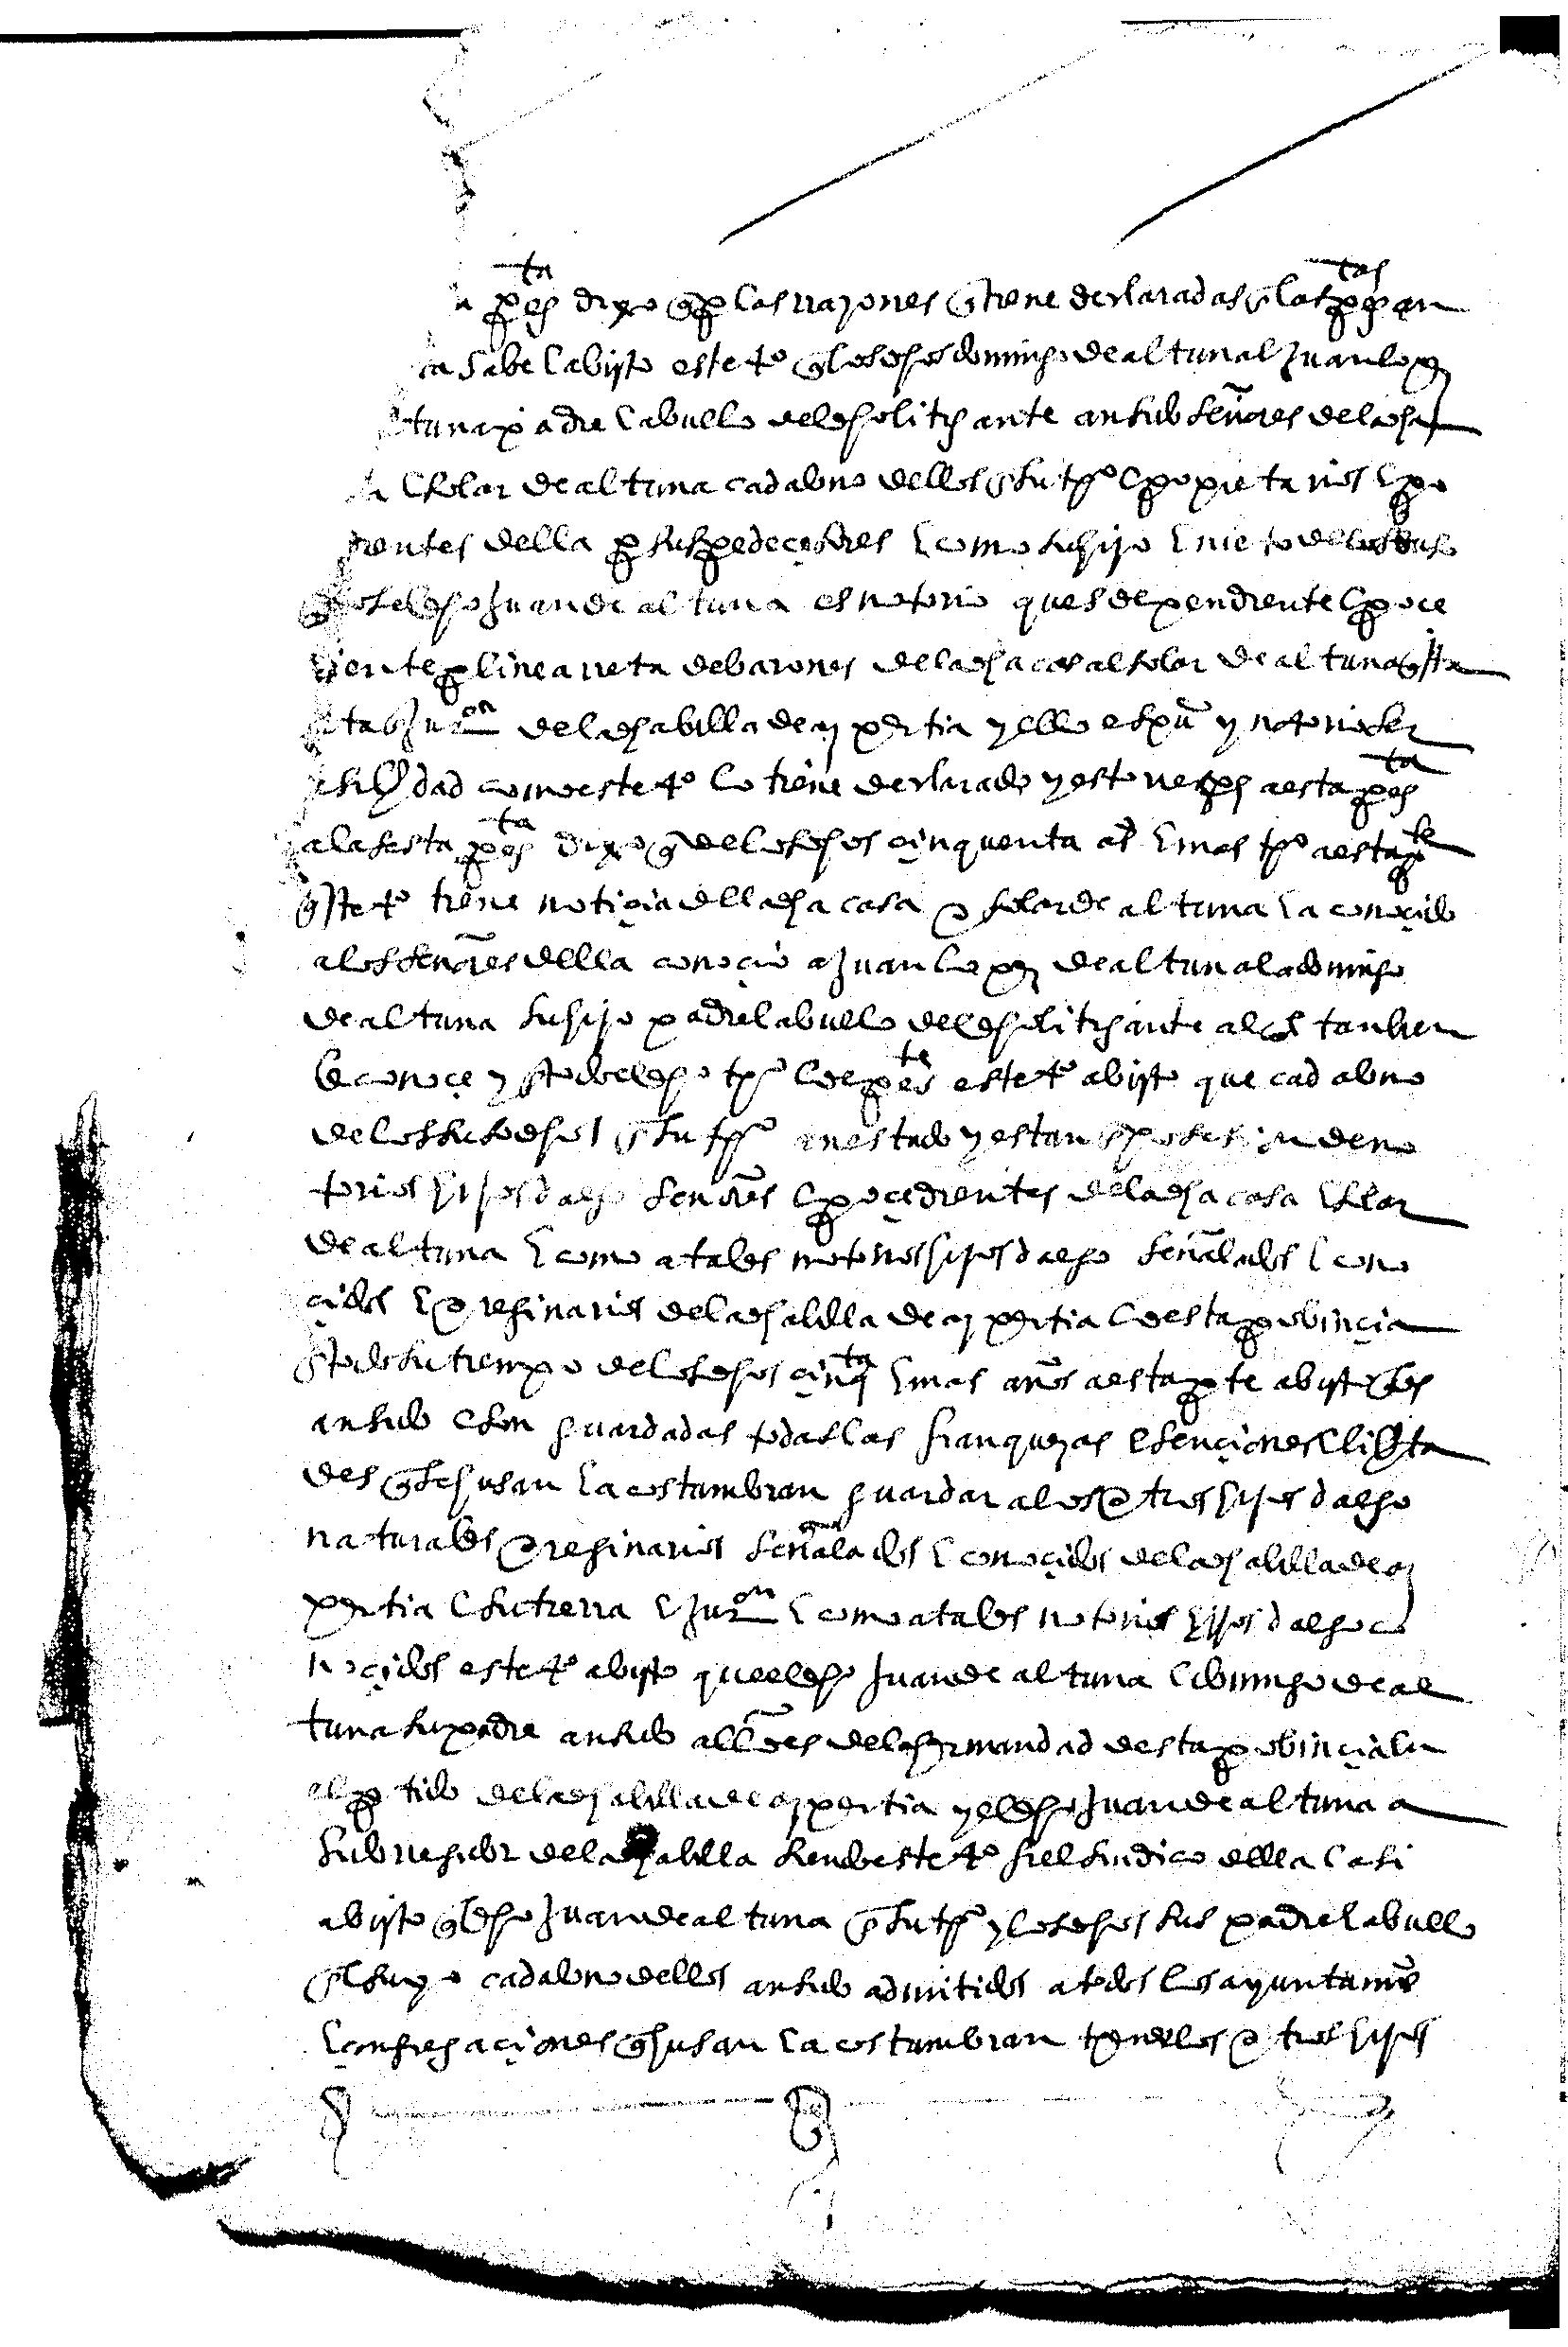 a pregta dixo q por las rrazones q tiene declaradas en las pregtas an
sabe e a bisto este tº q los dhos domingo de altuna e juan lopz
altuna padre e abuello del dho litigante an sido señores de la dha
e solar de altuna cada uno dellos en su tpo e propietarios e pro
dientes della por sus predeçesores e como su hijo e nieto de los suso
dhos el dho juan de altuna es notorio que es dependiente e proce
diente por linea rreta de barones de la dha casa e solar de altuna questa
juron de la dha billa de azpeitia y ello es puco y notorio ser
berdad como este tº lo tiene declarado y esto rrespe a esta pregta
a la sesta pregta dixo q de los dhos çinquenta as e mas tpo a esta pte
queste tº tiene notiçia de la dha casa e solar de altuna e a conoçido
a los señores della conoçio a juan lopz de altuna e a domingo
de altuna su hijo padre e abuello del dho litigante al ql tanbien
le conoçe y en todo el dho tpo e de preste este tº a bisto que cada uno
de los susodhos en su tpo an estado y estan en posesion de no
torios hijos dalgo señores e proçedientes de la dha casa e solar
de altuna e como a tales notorios hijos dalgo señalados e cono
çidos e oreginarios de la dha billa de azpeitia e desta probinçia
en todo su tiempo de los dhos çinqta e mas años a esta parte a bisto q les
an sido e son guardadas todas las franquezas esençiones e liberta
des q se les usan e acostumbran guardar a los otros hijos dalgo
naturales oreginarios señalados e conoçidos de la dha billa de az
peitia e su tierra e juron e como a tales notorios hijos dalgo co
noçidos este tº a bisto que el dho juan de altuna e domingo de al
tuna su padre an sido alldes de la hermandad desta probinçia en
el partido de la dha billa de azpeitia y el dho juan de altuna a
sido rregidor de la dha billa siendo este tº fiel sindico della e asi
a bisto q el dho juan de altuna en su tpo y los dhos sus padre e abuello
en el suyo cada uno dellos an sido admitidos a todos los ayuntamios
e congregaçiones q usan e acostumbran tener los otros hijos